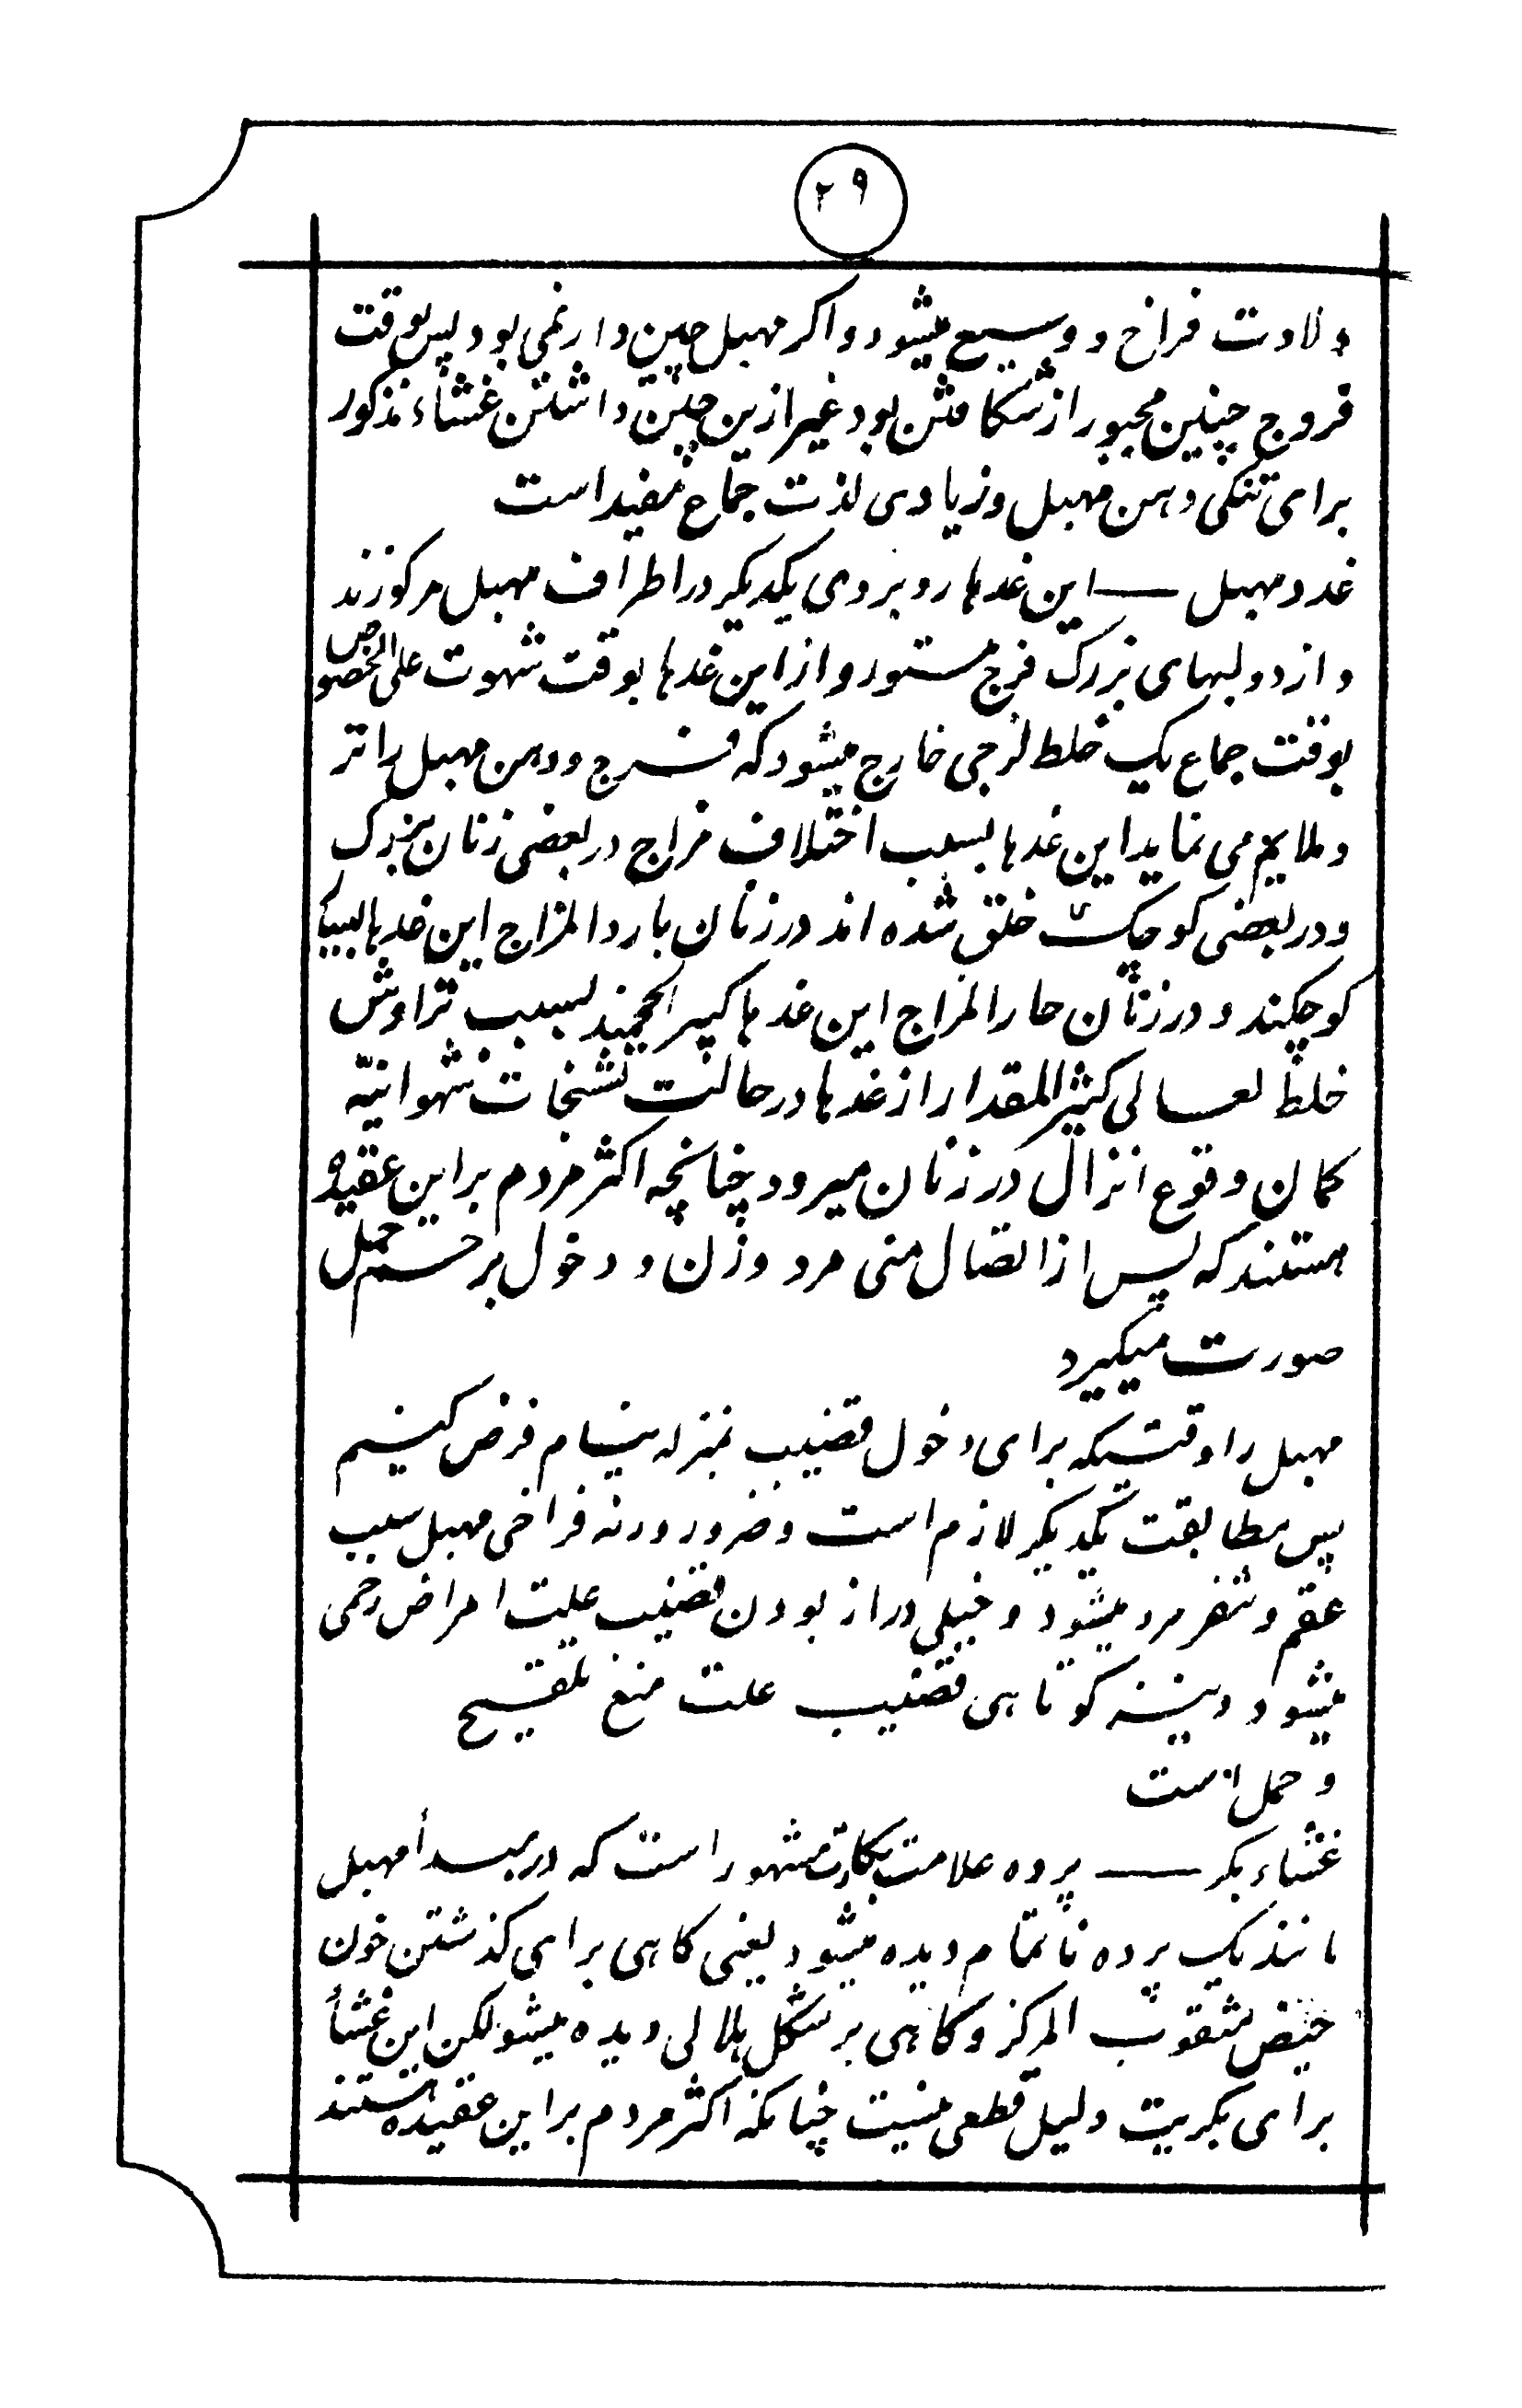 ۲۹
ولادت فراخ و وسیع میشود و اکر مهبل چین دار نمی بود پس بوقت
خروج جنین مجبور از شکافتن بود غیر ازین چین داشتن غشاء مذکور
برای تنکی دهن مهبل و زیادی لذت جماع مفید است
غدد مهبل — این غدها روبروی یکدیکر در اطراف مهبل مرکوزند
و از دو لبهای بزرک فرج مستور و از این غدها بوقت شهوت علی الخصوص
بوقت جماع یک خلط لزجی خارج میشود که فرج و دهن مهبل را تر
و ملایم می نماید این غدها بسبب اختلاف مزاج در بعضی زنان بزرک
و در بعضی کوچک خلق شده اند در زنان بارد المزاج این غدها بسیار
کوچکند و در زنان حار المزاج این غدها کبیر الحجمند بسبب تراوش
خلط لعابی کثیر المقدار از غدها در حالت تشنجات شهوانیّه
کمان وقوع انزال در زنان میرود چنانچه اکثر مردم بر این عقیده
هستند که پس از اتصال منی مرد و زن و دخول بر رحم حمل
صورت میکیرد
مهبل را وقتیکه برای دخول قضیب بمنزله نیام فرض کنیم
پس مطابقت یکدیکر لازم است و ضرور ورنه فراخی مهبل سبب
عقم و تنفر مرد میشود و خیلی دراز بودن قضیب علت امراض رحمی
میشود و نیز کوتاهی قضیب علت منع تلقیح
و حمل است
غشاء بکر — پرده علامت بکارت مشهور است که در مبدأ مهبل
مانند یک پرده ناتمام دیده میشود یعنی کاهی برای کذشتن خون
حیض مثقوب المرکز و کاهی بر شکل هلالی دیده میشود لکن این غشأ
برای بکریت دلیل قطعی نیست چنانکه اکثر مردم بر این عقیده هستند